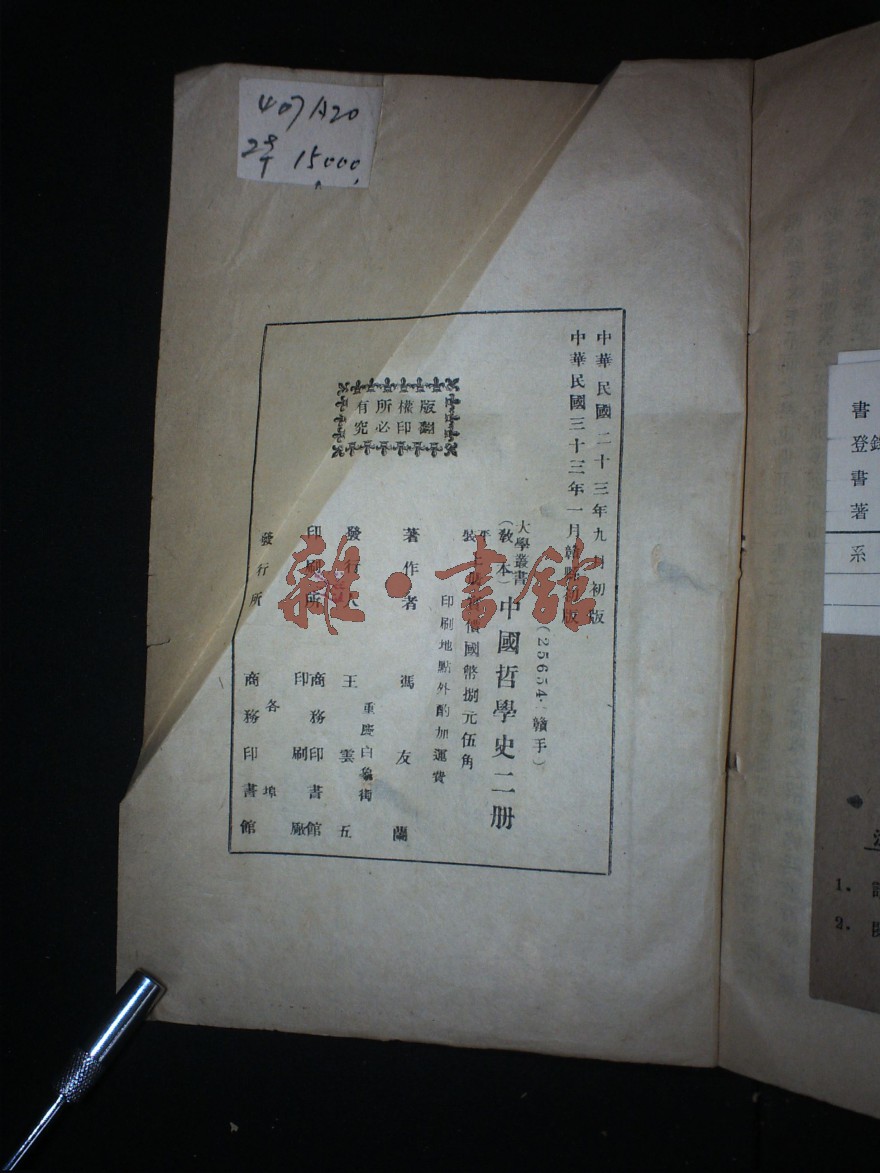 407 A20
15000
中華民國二十三年九月初版
中華民國三十三年一月贛縣初版
(25654·贛手)
大學叢書
(教本)中國哲學史二册
國幣捌元伍角
印刷地點外酌加運費
著作者 馮友蘭
重慶白象街
發行人 王雲五
印刷所 商務印書館
印刷廠
各埠
發行所 商務印書館
版權所有
翻印必究
雜·書館
書
登錄
書
著
系
1.
2.